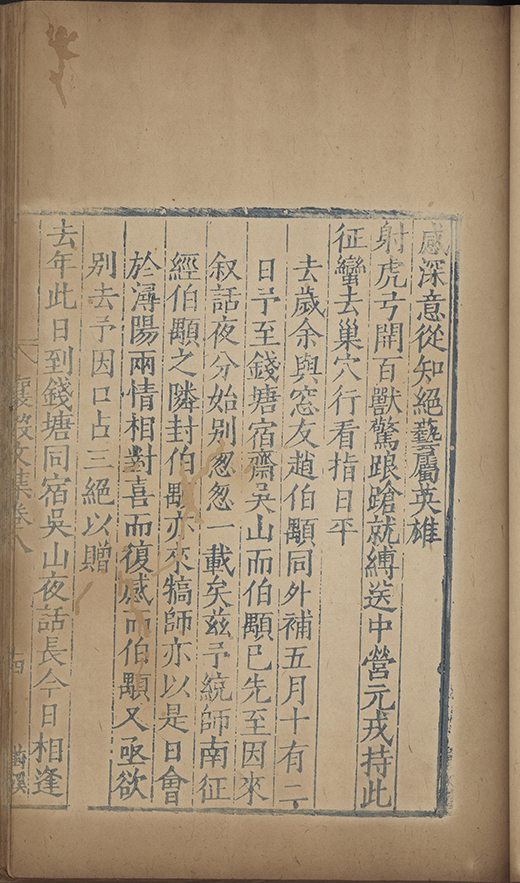 感深意從知絕藝屬英雄
射虎弓開百獸驚踉蹌就縛送中營元戎持此
征蠻去巢穴行看指日平
去歲余與窓友趙伯顒同外補五月十有二
日予至錢塘宿齋吳山而伯顒已先至因來
叙話夜分始别忽忽一載矣茲予統師南征
經伯顒之隣封伯顒亦來犒師亦以是日會
於潯陽兩情相對喜而復感而伯顒又亟欲
别去予因口占三絕以贈
去年此日到錢塘同宿吳山夜話長今日相逢
襄毅文集卷八
四